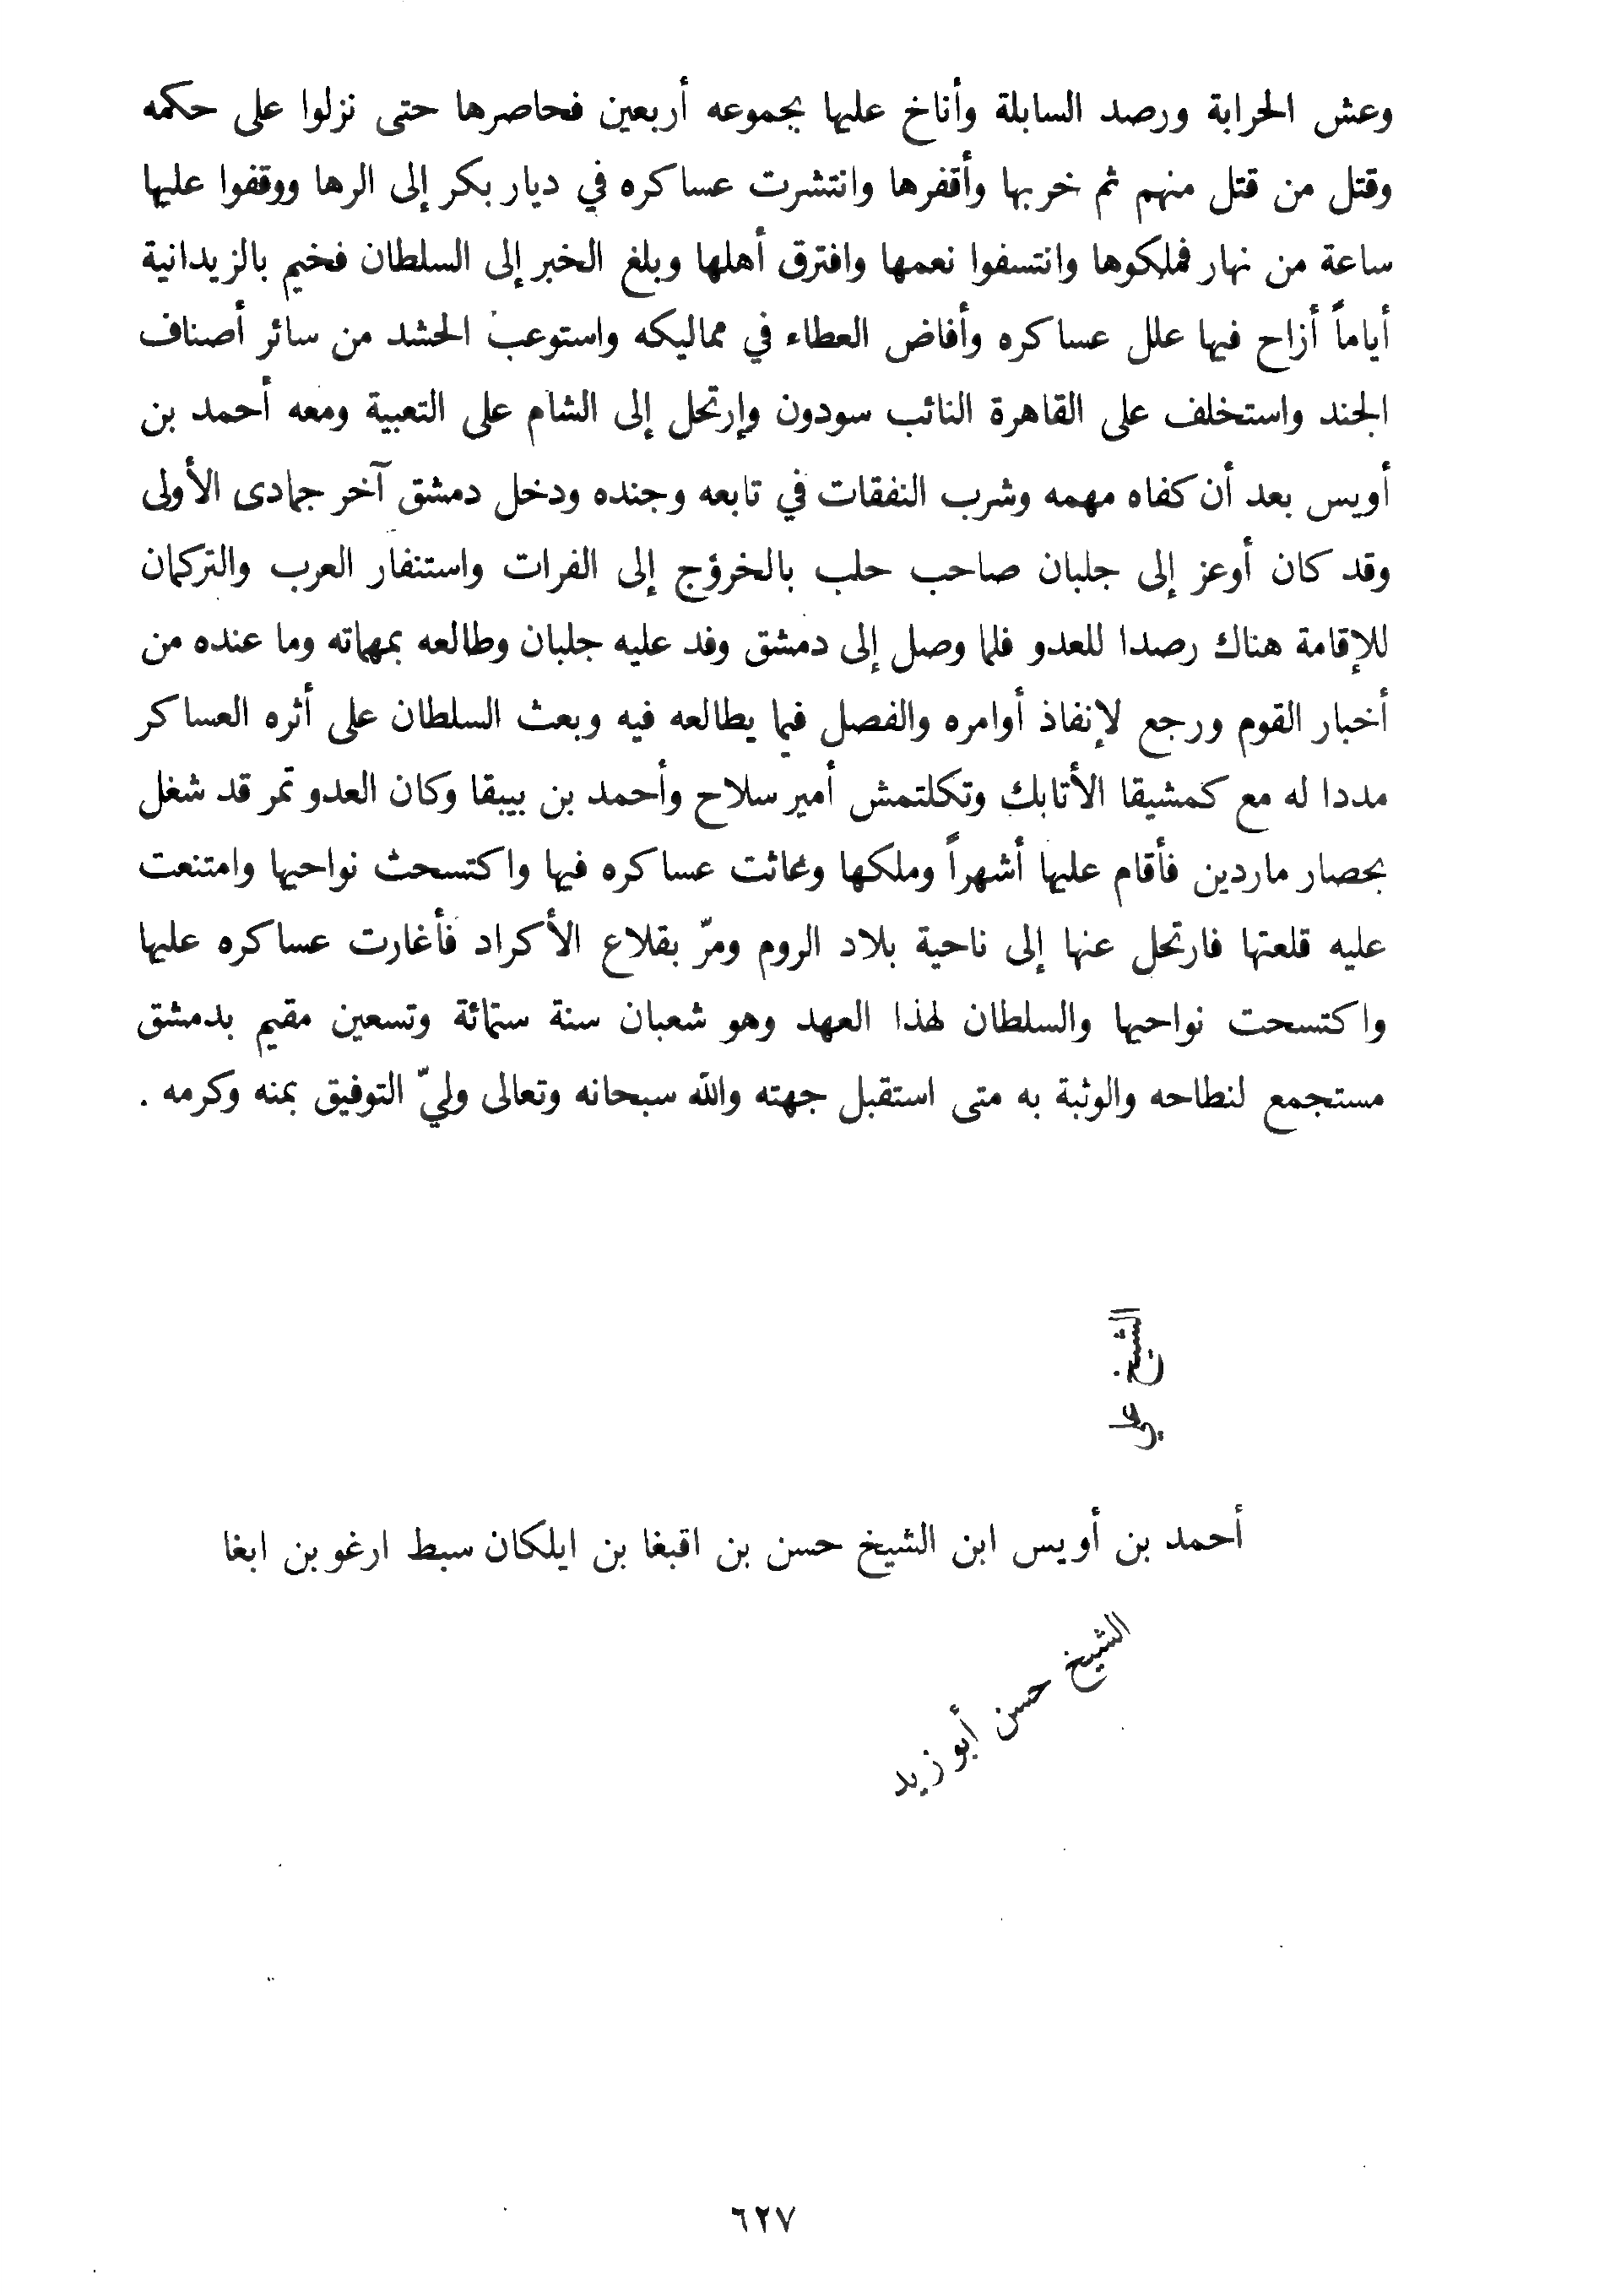 وعش الحرابة ورصد السابلة وأناخ عليها بجموعه أربعين فحاصرها حتى نزلوا على حكمه
وقتل من قتل منهم ثم خربها وأقفرها وانتشرت عساكره في ديار بكر إلى الرها ووقفوا عليها
ساعة من نهار فملكوها وانتسفوا نعمها وافترق أهلها وبلغ الخبر إلى السلطان فخيم بالزيدانية
أياماً أزاح فيها علل عساكره وأفاض العطاء في مماليكه واستوعب الحشد من سائر أصناف
الجند واستخلف على القاهرة النائب سودون وإرتحل إلى الشام على التعبية ومعه أحمد بن
أويس بعد أن كفاه مهمه وشرب النفقات في تابعه وجنده ودخل دمشق آخر جمادى الأولى
وقد كان أوعز إلى جلبان صاحب حلب بالخرؤج إلى الفرات واستنفار العرب والتركمان
للإقامة هناك رصدا للعدو فلما وصل إلى دمشق وفد عليه جلبان وطالعه بمهماته وما عنده من
أخبار القوم ورجع لإنفاذ أوامره والفصل فيما يطالعه فيه وبعث السلطان على أثره العساكر
مددا له مع كمشيقا الأتابك وتكلتمش أمير سلاح وأحمد بن بيبقا وكان العدو تمر قد شغل
بحصار ماردين فأقام عليها أشهراً وملكها وغاثت عساكره فيها واكتسحث نواحيها وامتنعت
عليه قلعتها فارتحل عنها إلى ناحية بلاد الروم ومرّ بقلاع الأكراد فأغارت عساكره عليها
واكتسحت نواحيها والسلطان لهذا العهد وهو شعبان سنة ستمائة وتسعين مقيم بدمشق
مستجمع لنطاحه والوثبة به متى استقبل جهته والله سبحانه وتعالى وليّ التوفيق بمنه وكرمه .
الشيخ علي
أحمد بن أويس ابن الشيخ حسن بن اقبغا بن ايلكان سبط ارغو بن ابغا
الشيخ حسن أبو زيد
٦٢٧